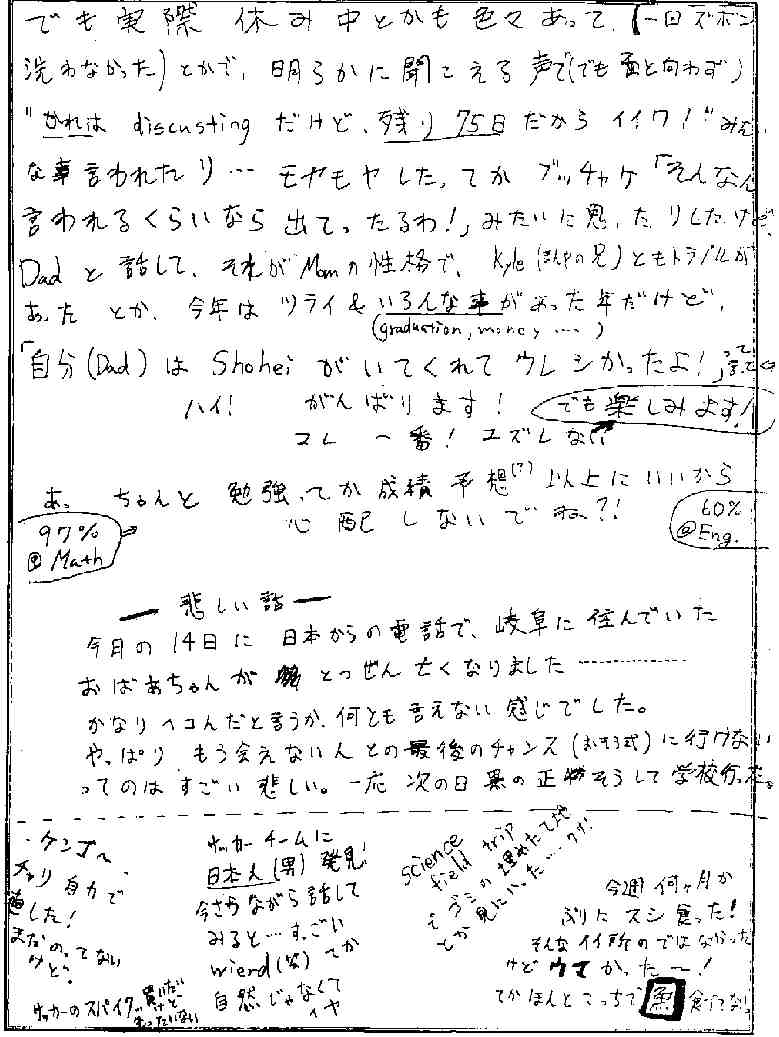 でも実際 休み中とかも色々あって、(一回ズボン
洗わなかった)とかで、明らかに聞こえる声で(でも面と向わず)
"かれは discusting だけど、残り75日だからイイワ!"みたい
な事言われたり… モヤモヤした。てか ブッチャケ「そんなん
言われるくらいなら 出てったるわ!」みたいに思ったりしたけど、
Dad と 話して、それが Mom の 性格で、Kyle (まん中の兄) ともトラブルが
あった とか、今年は ツライ & いろんな事があった年だけど、
(graduation, money …)
「自分(Dad)は Shohei がいてくれて ウレシかったよ!」って言ってた
ハイ! がんばります! でも楽しみます!
コレ 一番! ユズレない
あっ ちゃんと 勉強、てか 成績 予想(?)以上にいいから
心配しないでね?!
97%
@Math
60%
@Eng.
ー 悲しい話 ー
今月の 14日に 日本からの電話で、岐阜に 住んでいた
おばあちゃんが とつぜん 亡くなりました…………
かなり ヘコんだと言うか、何とも言えない 感じでした。
やっぱり もう会えない人との最後のチャンス(おそう式)に行けない
ってのは すごい 悲しい。一応 次の日 黒の正装して 学校行った。
・ケンゴ〜
チャリ 自力で
直した!
まだのってない
けど。
サッカーのスパイク 買いたいけど
サッカーチームに
日本人(男)発見!
今さらながら 話して
みると…すごい
wierd(な) てか
自然じゃなくて
イヤ
science
field trip
ゴミの埋めたて地
とか 見にいった…クサ!
今週 何ヶ月か
ぶりに スシ 食った!
そんなイイ所のではなかった
けど ウマかった〜!
てかほんと こっちで 魚 食べてない